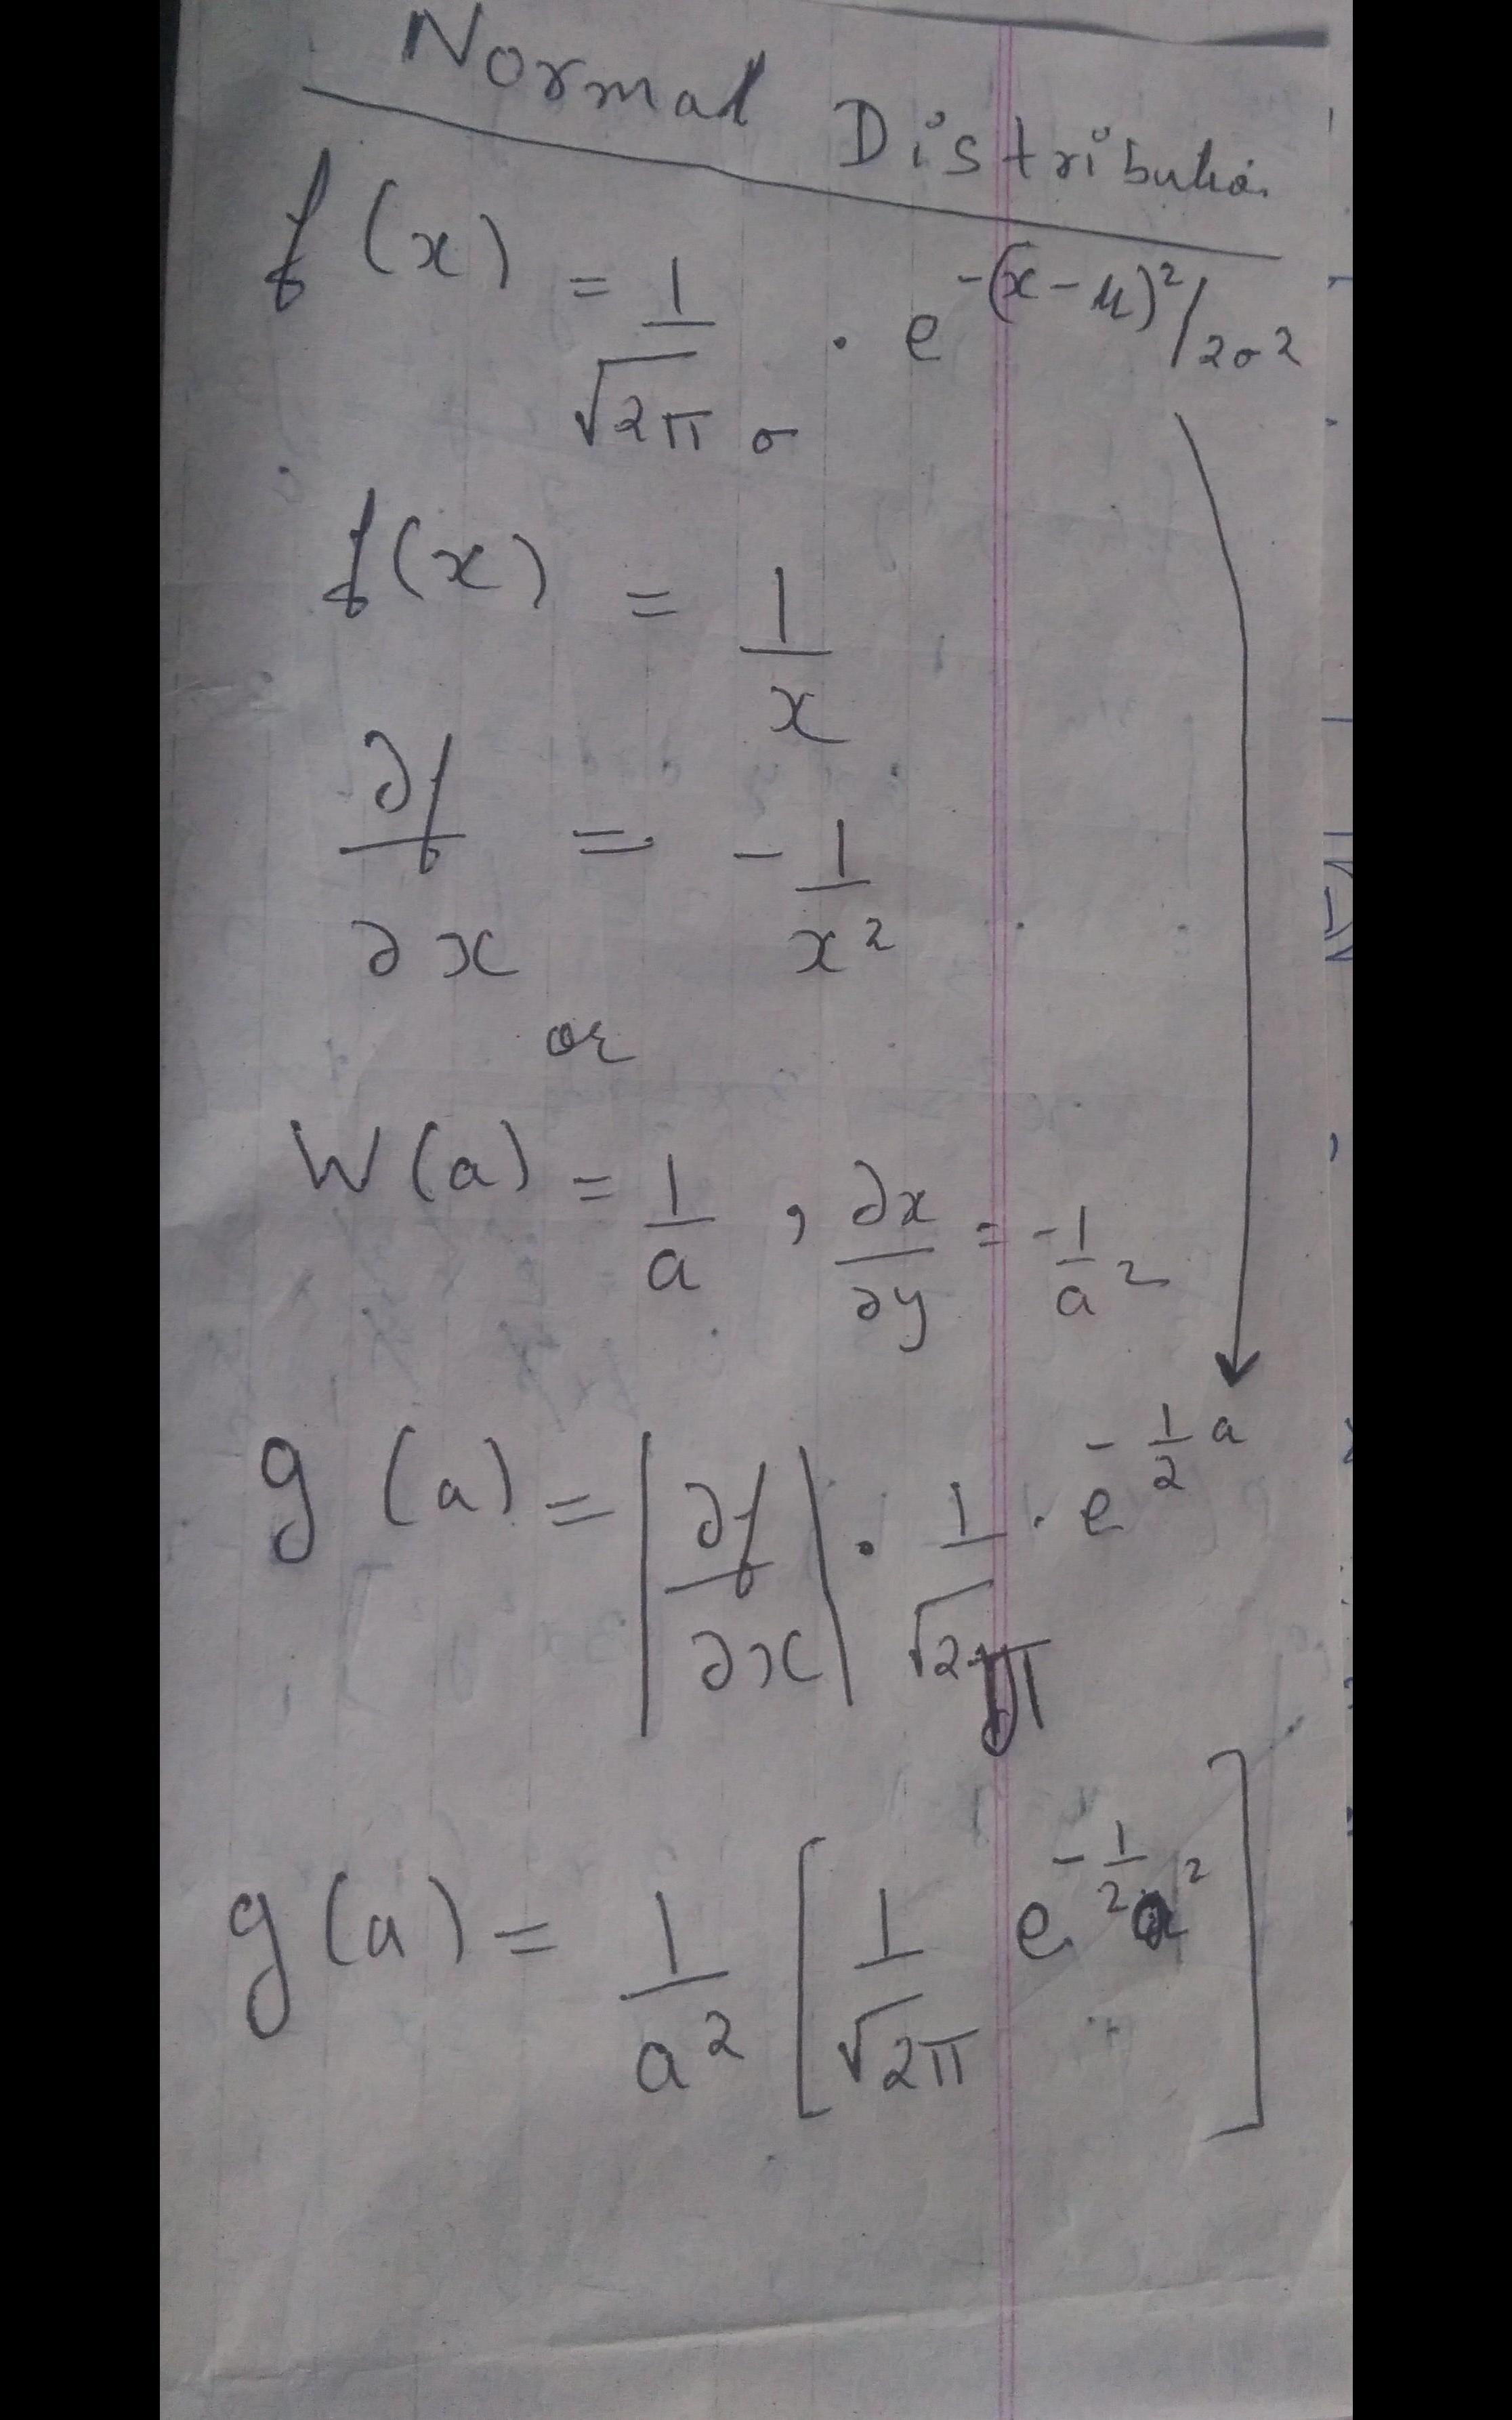 Normal Distribution
f(x) = 1/√2π σ · e^-(x-μ)²/2σ²
f(x) = 1/x
∂f/∂x = -1/x²
or
W(a) = 1/a , ∂x/∂y = -1/a²
g(a) = |∂f/∂x| · 1/√2π · e^-1/2 a
g(a) = 1/a² [1/√2π e^-1/2a²]